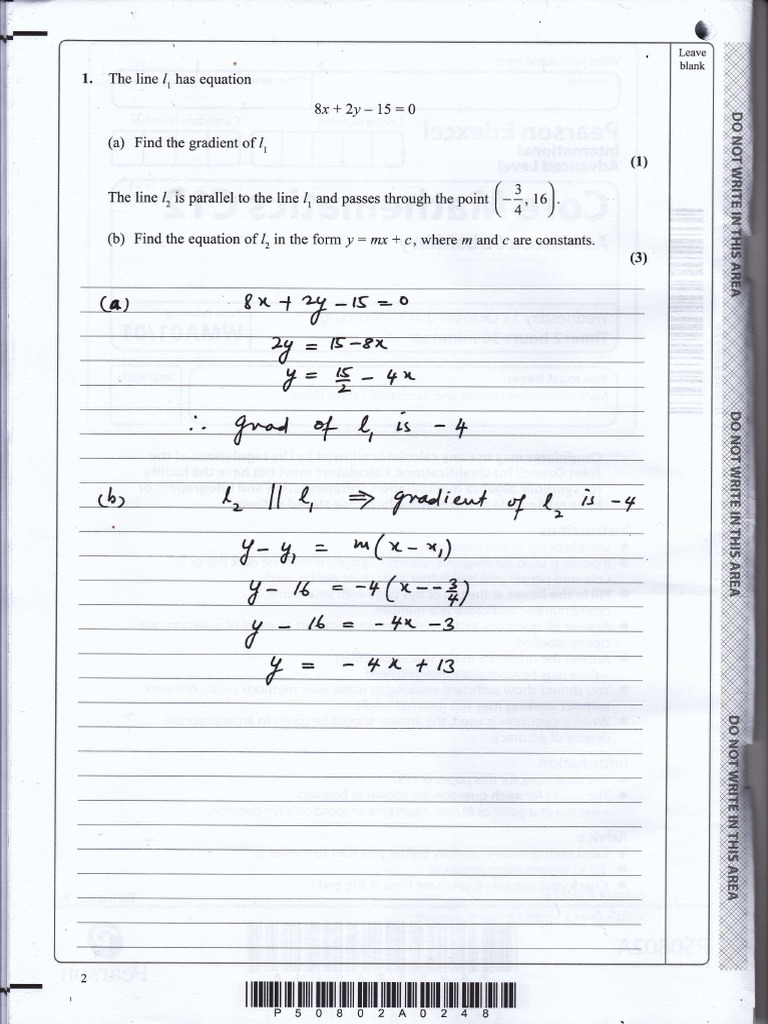 Leave
blank
1. The line l₁ has equation
8x + 2y – 15 = 0
(a) Find the gradient of l₁
(1)
The line l₂ is parallel to the line l₁ and passes through the point (–3/4, 16).
(b) Find the equation of l₂ in the form y = mx + c, where m and c are constants.
(3)
(a) 8x + 2y – 15 = 0
2y = 15 – 8x
y = 15/2 – 4x
∴ grad of l₁ is – 4
(b) l₂ || l₁ ⇒ gradient of l₂ is –4
y – y₁ = m(x – x₁)
y – 16 = –4(x – –3/4)
y – 16 = –4x –3
y = – 4x + 13
DO NOT WRITE IN THIS AREA
DO NOT WRITE IN THIS AREA
DO NOT WRITE IN THIS AREA
2
P50802A0248